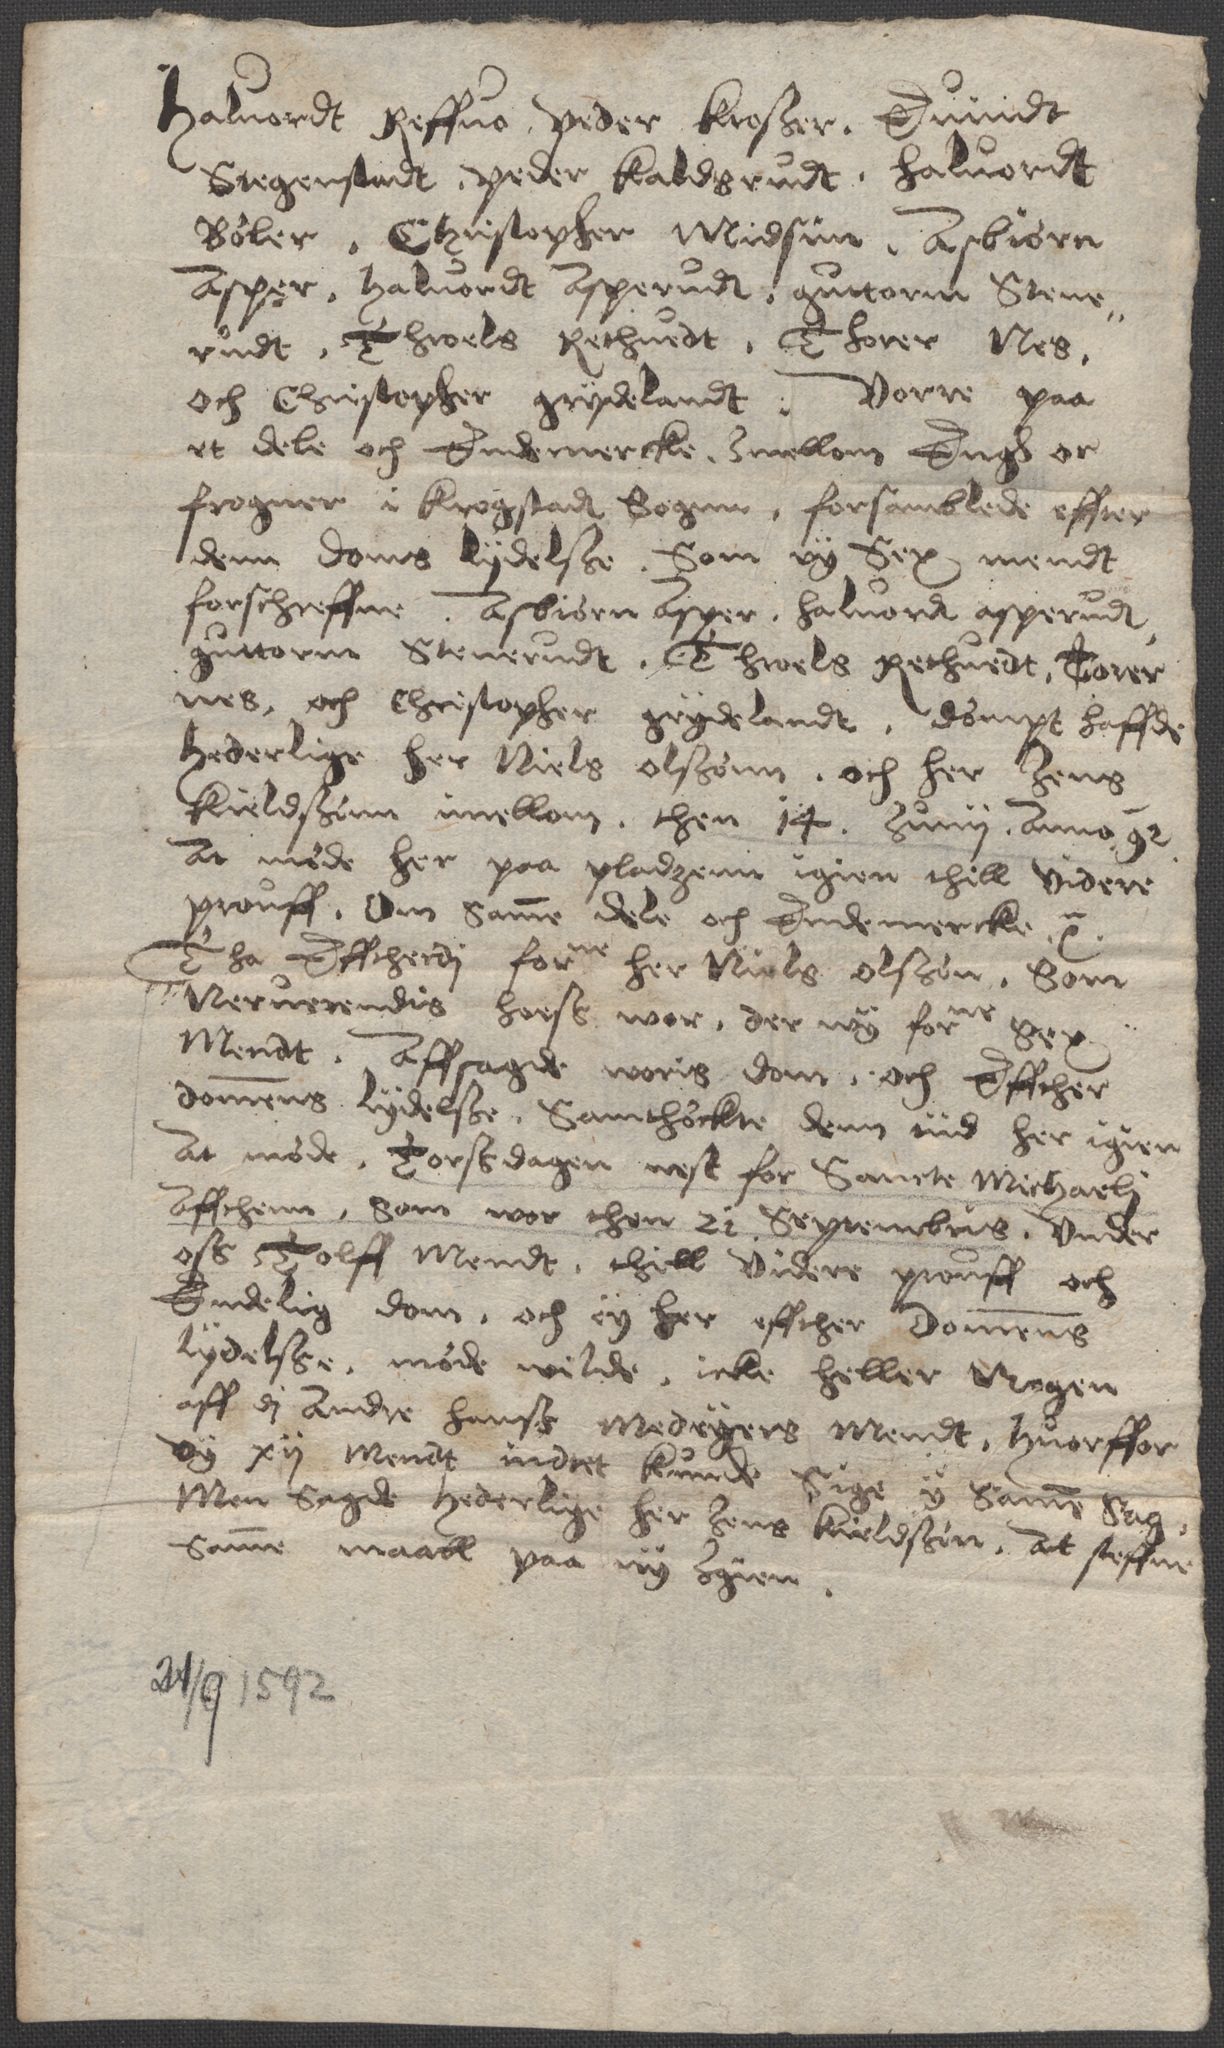 Haluordt Reffuo, peder Krosßer. Euindt
Stegenstadt, peder Kaldsrudt, haluordt
Böler, Christopher Midsiin, Asbiörn
Asper, haluordt Asperudt, guttorm Stene„
rudt, Throels Rethuedt, Thorer Nes,
och Christopher grydelandt, Vorre paa
et dele och Endemercke, Imellom Engh or
frogner i Krogstadt Sogenn, forsamblede effter
denn doms lÿdelsße, Som vÿ Sex mendt
forschreffne, Asbiörn Asper, haluordt asperudt,
guttorm Stenerudt, Throels Rethuedt, Torer
nes, och Christopher grÿdelandt, dömpt haffde
hederlige her Niels olsßönn, och her Jens
Kieldsßönn imellom, then 14. Junij. Anno 92
At möde her paa pladzenn igien thill videre
prouff, Om Samme dele och Endemercke,
Tha Effcherdj forne her Niels olsßön, Som
Neruerendis hoesß wor, der wÿ forne Sex
Mendt, Affsagde woris dom, och Effcher
domens lÿdelsße, Samthöckte denn tiid her igien
At möde, Torsßdagen nest for Sancte Michaelj
Affthenn, Som wor then 21. Septembris, Vnder
osß Tolff Mendt, thill videre prouff och
Endelig dom, och ey her effther Domens
lÿdelsße, möde wilde, icke heller Nogen
aff dj Andre hansß Medeÿers Mendt, huorffor
vÿ xij Mendt indtet kunde Sige ÿ Samme Sag,
Men Sagde hederlige her Jens Kieldsßön, At steffne
Samme maall paa nÿ Igien.
21/9 1592